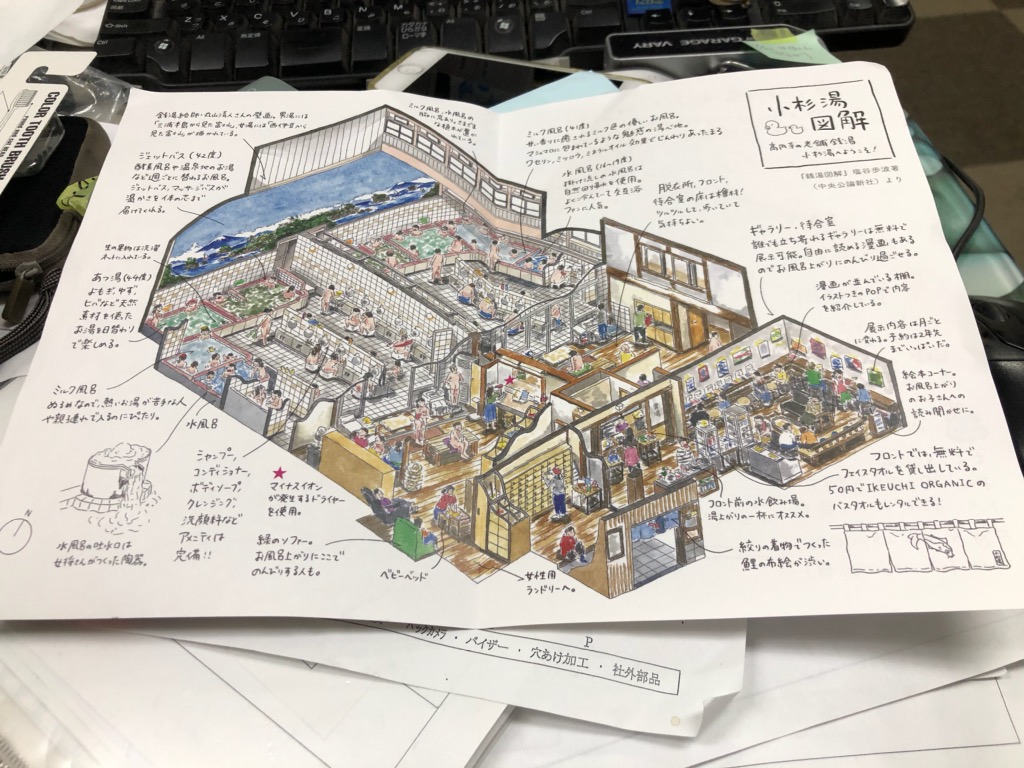 GARAGE VARY
COLOR TOOTH BRUSH
小杉湯
図解
高円寺の老舗銭湯
小杉湯へようこそ!
「銭湯図解」塩谷歩波著
(中央公論新社)より
銭湯絵師・丸山清人さんの壁画。男湯には
見た富士山」が描かれている。
ジェットバス(42度)
酵素風呂や温泉地のお湯
など週ごとに替わるお風呂。
ジェットバス、マッサージバスが
温かさを体のすみまで
届けてくれる。
生の果物は洗濯
ネットに入れている。
あつ湯(44度)
よもぎ、ゆず、
ヒバなど天然
素材を使った
お湯を日替わり
で楽しめる。
ミルク風呂
ぬるめなので、熱いお湯が苦手な人
や親子連れで入るのにぴったり。
水風呂
N
水風呂の吐水口は
女将さんがつくった陶器。
シャンプー、
コンディショナー、
ボディソープ、
クレンジング、
洗顔料など
アメニティは
完備!!
★
マイナスイオン
が発生するドライヤー
を使用。
緑のソファー。
お風呂上がりにここで
のんびりする人も。
ベビーベッド
女性用
ランドリーへ。
ミルク風呂、水風呂の
れている。
ミルク風呂(41度)
甘い香りに癒されるミルク色の優しいお風呂。
マシュマロに包まれているような魅惑の湯心地。
ワセリン、ミツロウ、ミネラルオイル効果でじんわりあったまる
水風呂(16〜17度)
掛け流しの水風呂は
自然回帰水を使用。
よく冷えていて交互浴
ファンに人気。
脱衣所、フロント、
待合室の床は檜材!
ツルツルして、歩いていて
気持ちよい。
ギャラリー・待合室
誰でも立ち寄れるギャラリーは無料で
展示可能。自由に読める漫画もある
のでお風呂上がりにのんびり過ごせる。
漫画が並んでいる棚。
イラストつきのPOPで内容
を紹介している。
展示内容は月ごと
に変わる。予約は2年先
までいっぱいだ。
絵本コーナー。
お風呂上がり
のお子さんへの
読み聞かせに。
フロントでは、無料で
フェイスタオルを貸し出している。
50円でIKEUCHI ORGANICの
バスタオルもレンタルできる!
フロント前の水飲み場。
湯上がりの一杯にオススメ。
絞りの着物でつくった
鯉の布絵が渋い。
P
バックカメラ・バイザー・穴あけ加工・社外部品